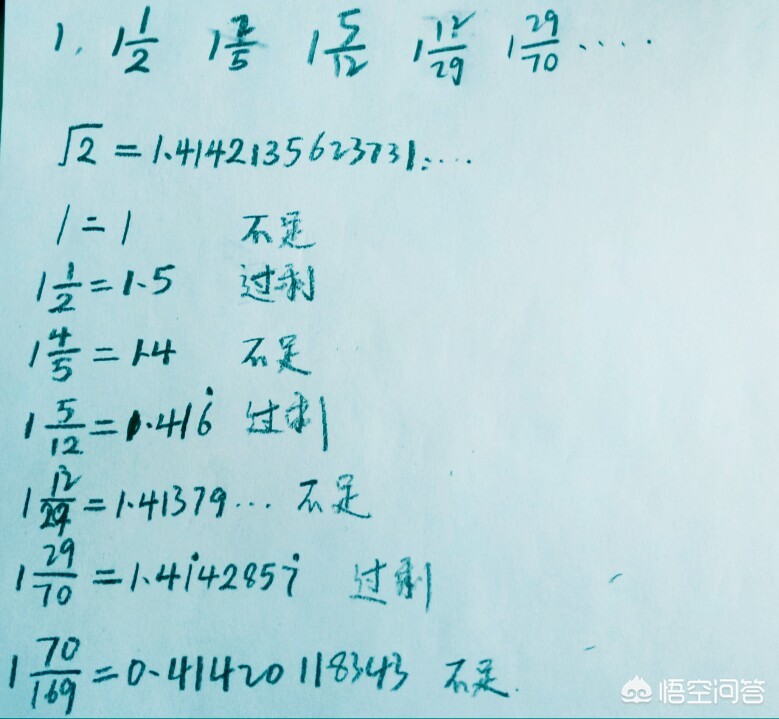 1, 1 1/2 1 2/5 1 5/12 1 12/29 1 29/70 ····
√2 = 1.4142135623731....
1 = 1 不足
1 1/2 = 1.5 过剩
1 4/5 = 1.4 不足
1 5/12 = 1.416̇ 过剩
1 12/29 = 1.41379... 不足
1 29/70 = 1.41̇42857̇ 过剩
1 70/169 = 0.41420118343 不足.
悟空问答